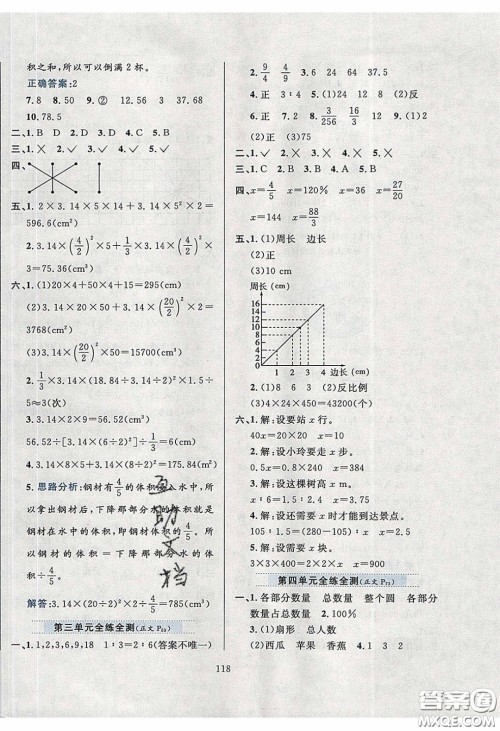 积之和,所以可以倒满2杯。
正确答案:2
7.8 8.50 9.② 12.56 3 37.68
10.78.5
二、1.B D 2.B 3.A 4.C
三、1.× 2.✓ 3.✓ 4.✓ 5.✓
四、
五、1.2×3.14×5×14+3.14×5²×2=
596.6(cm²)
2.3.14×(4/2)²×5+1/3×3.14×(4/2)²
×3=75.36(cm³)
六、1.(1)20×4+50×4+15=295(cm)
(2)3.14×20×50+3.14×(20/2)²×2=
3768(cm²)
(3)3.14×(20/2)²×50=15700(cm³)
2.1/3×3.14×(18.84÷3.14÷2)²×1.5÷
5≈3(次)
3.3.14×(6÷2)²×2=56.52(cm³)
56.52÷[3.14×(6÷2)²÷1/3=6(cm)
4.1/3×3.14×(4÷2)²×42=175.84(m³)
5.思路分析:钢材有4/5的体积在水中,所
以拿出钢材后,下降那部分水的体积=
钢材在水中的体积=钢材的体积×4/5。
所以钢材的体积=下降那部分水的体
积÷4/5。
解答:3.14×(20÷2)²×2÷4/5=785(cm³)
第三单元全练全测(正文P₅₃)
一、1.1,2,3,6,9,18 1∶3=2∶6(答案不唯一)
2.9/4 4/9 3.6 24 64 36
4.正 3∶4 5.(1)24 12 (2)反
6.正 7.8.1 8.3/256 3/16 9.33
10.(1)60 120 180 240 300
(2)正 (3)75
二、1.C 2.C 3.C 4.B 5.A
三、1.✓ 2.✓ 3.× 4.× 5.×
四、x=4/5 x=120% x=36 x=27/20
x=144 x=88/3
五、1.(1)周长 边长
(2)正
(3)10cm
周长(cm)
16
14
12
10
8
6
4
2
0 1 2 3 4 边长(cm)
2.(1)8 6 (2)反比例
(3)4×24×450=43200(个)
六、1.解:设要站x行。
40x=20×20 x=10
2.解:设小玲要走x步。
0.5x=0.8×240 x=384
3.解:设这棵树高x米。
x∶9=1∶1.5 x=6
4.解:设需要x时才能到达景点。
80∶1=280∶x x=3.5
5.解:设需要x块。
3×3×400=2×2×x x=900
第四单元全练全测(正文P₇₇)
一、1.各部分数量 总数量 整个圆 各部分
数量占总数量 2.100%
3.(1)扇形 总人数
(2)西瓜 苹果 香蕉 4.1 3
互
助
文
档
118
答案圈
MXQE.COM